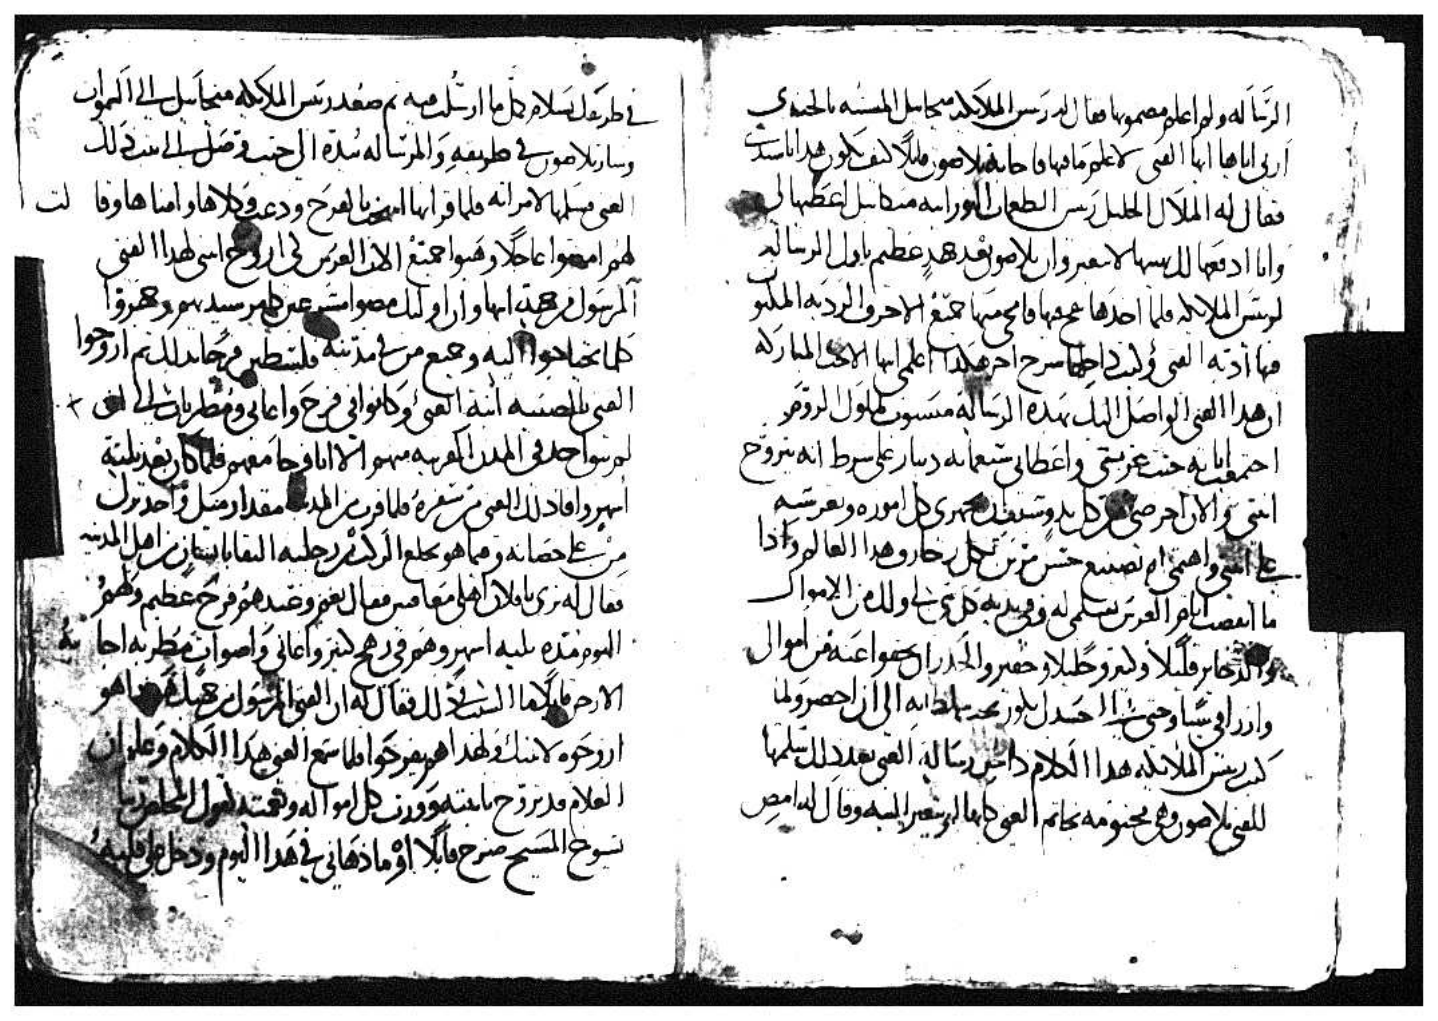 الرساله ولم اعلم مضمونها فقال له رييس الملايكه ميخاييل المشبه بالجندي
ارني اياها ايها الغني لاعلم ما فيها فاجابه تلاصون قايلا كيف يكون هدا يا سيدي
فقال له الملاك الجليل رييس الطغمات النورانيه ميخاييل اعطيها لي
وانا ادفعها لك بعينها لا تتغير وان تلاصون بعد جهد عظيم ناول الرساله
لرييس الملايكه فلما اخدها عج فيها فامحى منها جميع الاحرف الرديه المكتوب
فيها اديه الفتى وكتب داخلها شرح اخر هكدا اعلمي ايتها الاخت المباركه
ان هدا الفتى الواصل اليك بهده الرساله منسوب لملوك الروم
اجتمعت انا به حيث غربتي واعطاني تسعمايه دينار على شرط انه يتزوج
ابنتي والان احرصي كل وتجهزي كل اموره وتعرسيه
على ابنتي واهتمي ان تصنعي حسن تزين بكل رخارف هدا العالم وادا
ما انقضت ايام العرس تسلمي له في يديه كل شي لي ولك من الاموال
والدخاير قليلا وكثيرا وجليلا وحقيرا والحدر ان يخفوا عنه من اموالي
وارزاقي شيا وحتى الجسد يكون تحت سلطانه الى ان احضر ولما
كتب رييس الملايكه هدا الكلام داخل رساله الغني بعد دلك سلمها
للفتى تلاصون وهي مختومه بخاتم الغني كانها لم تتغير البته وقال له امضي
في طريقك بسلام كل ما ارسلت فيه تم صعد رييس الملايكه ميخاييل الى السموات
وسار تلاصون في طريقه والرساله بيده الى حيث وصل الى بيت دلك
الغني وسلمها لامراته فلما قراتها امتلت بالفرح ودعت وكلاها وامناها وقالت
لهم امضوا عاجلا وهيوا جميع الات العرس لكي ازوج ابنتي لهدا الفتى
المرسول من جهة ابيها وان اوليك مضوا مسرعين كامر سيدتهم وجهزوا
كلما يحتاجوا اليه وجميع من في مدينة فلسطين فرحانين لدلك ثم ازوجوا
الفتى بالصبيه ابنة الغني وكانوا في فرح واغاني ومطربات الى ان
لم يبقى احد في المدن القريبه منهم الا اتا وفرحا معهم فلما كان بعد تلتة
اشهر وافا دلك الغني من سفره فلما قرب من المدينه مقدار ميل واحد نزل
من على حصانه وفيما هو يخلع الركب من رجليه التقاه انسان من اهل المدينه
فقال له ترى يا فلان اهلي متعافين فقال نعم وعندهم فرح عظيم ولهم
اليوم مدة تلتة اشهر وهم في رهج كثير واغاني واصوات مطربه اجابه
الاخر قايلا ما السبب في دلك فقال له ان الفتى المرسول من جهتك ها هو
ازوجوه لابنتك ولهدا هم يفرحوا فلما سمع الغني هدا الكلام وعلم ان
الغلام قد تزوج بابنته وورت كل امواله ونعمته لقول المخلص ربنا
يسوع المسيح صرخ قايلا اوه مادا دهاني في هدا اليوم ودخل على قلبه